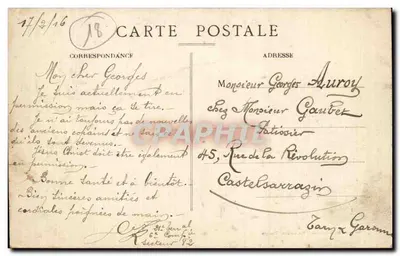 17/2/16
18
CARTE POSTALE
CORRESPONDANCE
ADRESSE
Mon cher Georges
Je suis actuellement en
permission mais ça se tire.
Je n'ai toujours pas de nouvelles
des anciens copains et
qu'ils sont devenus.
Jésus Christ doit être également
en permission.
Bonne santé et à bientôt.
Bien sincères amitiés et
cordiales poignées de main.
Secteur 92
Monsieur Georges Auroy
chez Monsieur Gaubet
Patissier
45, Rue de la Révolution
Castelsarrazin
Tarn & Garonne
CARPHILIA